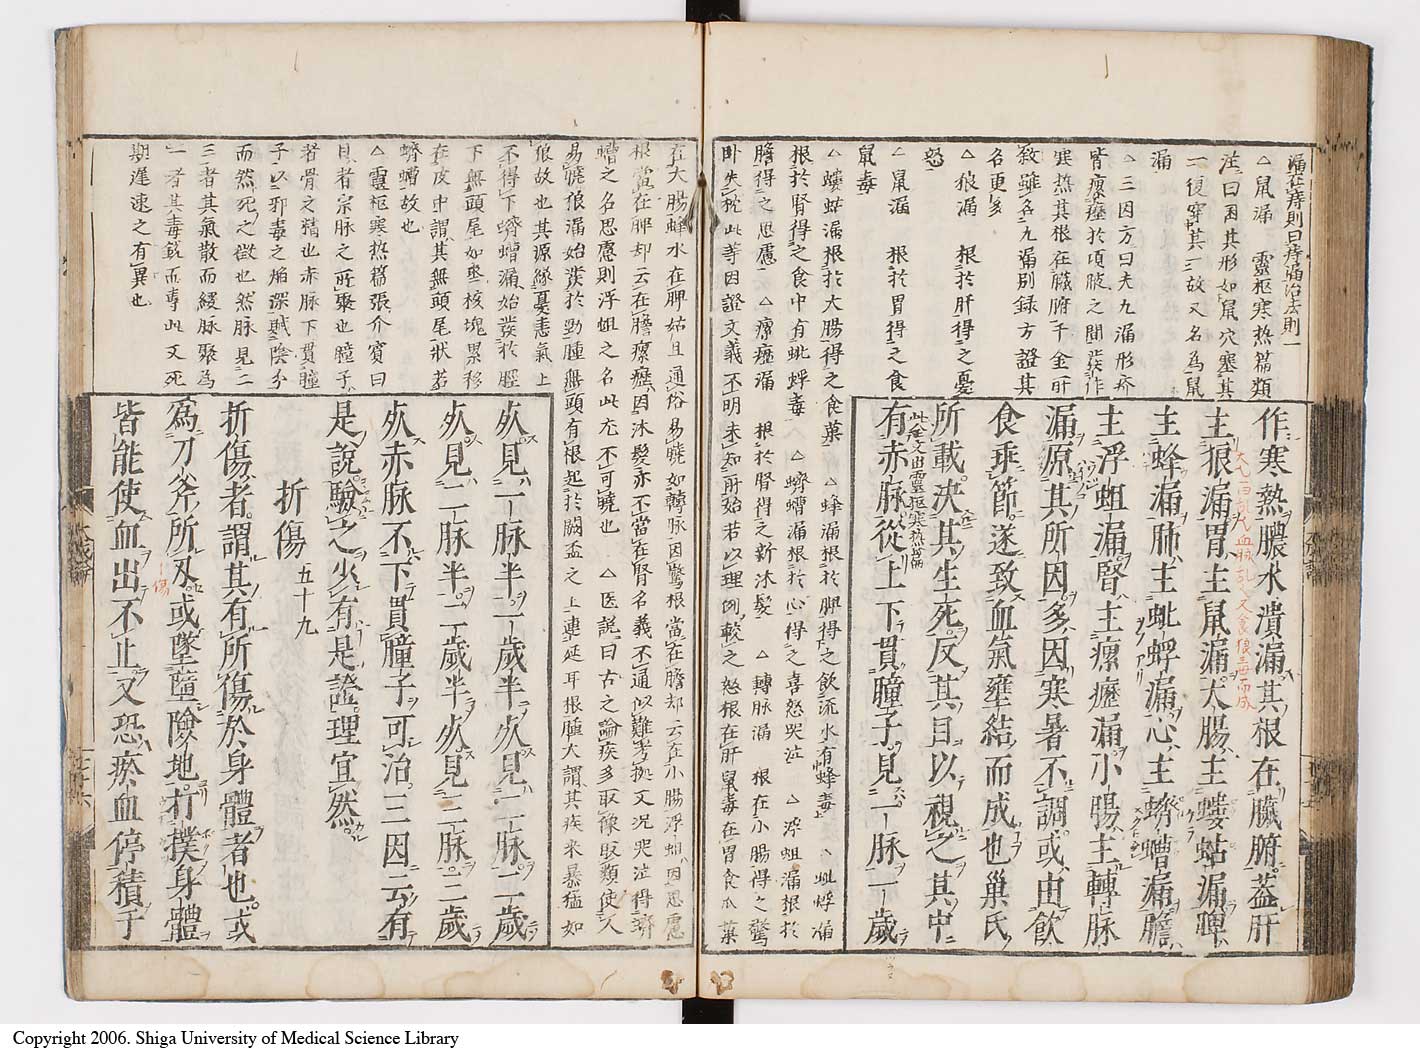 作寒熱膿水潰漏其根在臟腑蓋肝
主狼漏胃主鼠漏大腸主螻蛄漏脾
主蜂漏肺主蚍蜉漏心主蠐螬漏膽
主浮蛆漏腎主瘰癧漏小腸主轉脉
漏原其所因多因寒暑不調或由飲
食乖節遂致血氣壅結而成也巢氏
所載決其生死反其目以視之其中
有赤脉從上下貫瞳子見一脉一歲
此疰文出靈樞寒熱篇
△鼠漏 靈樞寒熱篇類
註曰因其形如鼠穴塞其
一復穿其一故又名為鼠
漏
△三因方曰夫九漏形疥
皆瘰癧於項腋之間發作
寒熱其根在臟腑千金所
敘雖名九漏別錄方證其
名更多
△狼漏 根於肝得之憂
怒
△鼠漏 根於胃得之食
鼠毒
△螻蛄漏根於大腸得之食菓 △蜂漏根於脾得之飲流水有蜂毒 △蚍蜉漏
根於腎得之食中有蚍蜉毒 △蠐螬漏根於心得之喜怒哭泣 △浮蛆漏根於
膽得之思慮 △瘰癧漏 根於腎得之新沐髮 △轉脉漏 根在小腸得之驚
卧失枕此等因證文義不明未知所始若以理例較之怒根在肝鼠毒在胃食瓜菓
在大腸蜂水在脾姑且通俗易曉如轉脉因驚根當在膽却云在小腸浮蛆因思慮
根當在脾却云在膽瘰癧因沐髮亦不當在腎名義不通似難考據又况哭泣得蠐
螬之名思慮則浮蛆之名此尤不可曉也 △医説曰古之論疾多取像取類使人
易曉狼漏始發於勁腫無頭有根起於闕盆之上連延耳根腫大謂其疾來暴猛如
狼故也其源緣憂恚氣上
不得下蠐螬漏始發於脛
下無頭尾如棗核塊累移
在皮中謂其無頭尾狀若
蠐螬故也
△靈樞寒熱篇張介賓曰
目者宗脉之所聚也瞳子
者骨之精也赤脉下貫瞳
子以邪毒之焰深賊陰分
而然死之徵也然脉見二
三者其氣散而緩脉聚為
一者其毒銳而專此又死
期遲速之有異也
歺見一脉半一歲半歺見二脉二歲
歺見二脉半二歲半歺見三脉三歲
歺赤脉不下貫瞳子可治三因云有
是説驗之少有是證理宜然
折傷 五十九
折傷者謂其有所傷於身體者也或
為刀斧所及或墜墮險地打撲身體
皆能使血出不止又恐瘀血停積于
Copyright 2006. Shiga University of Medical Science Library